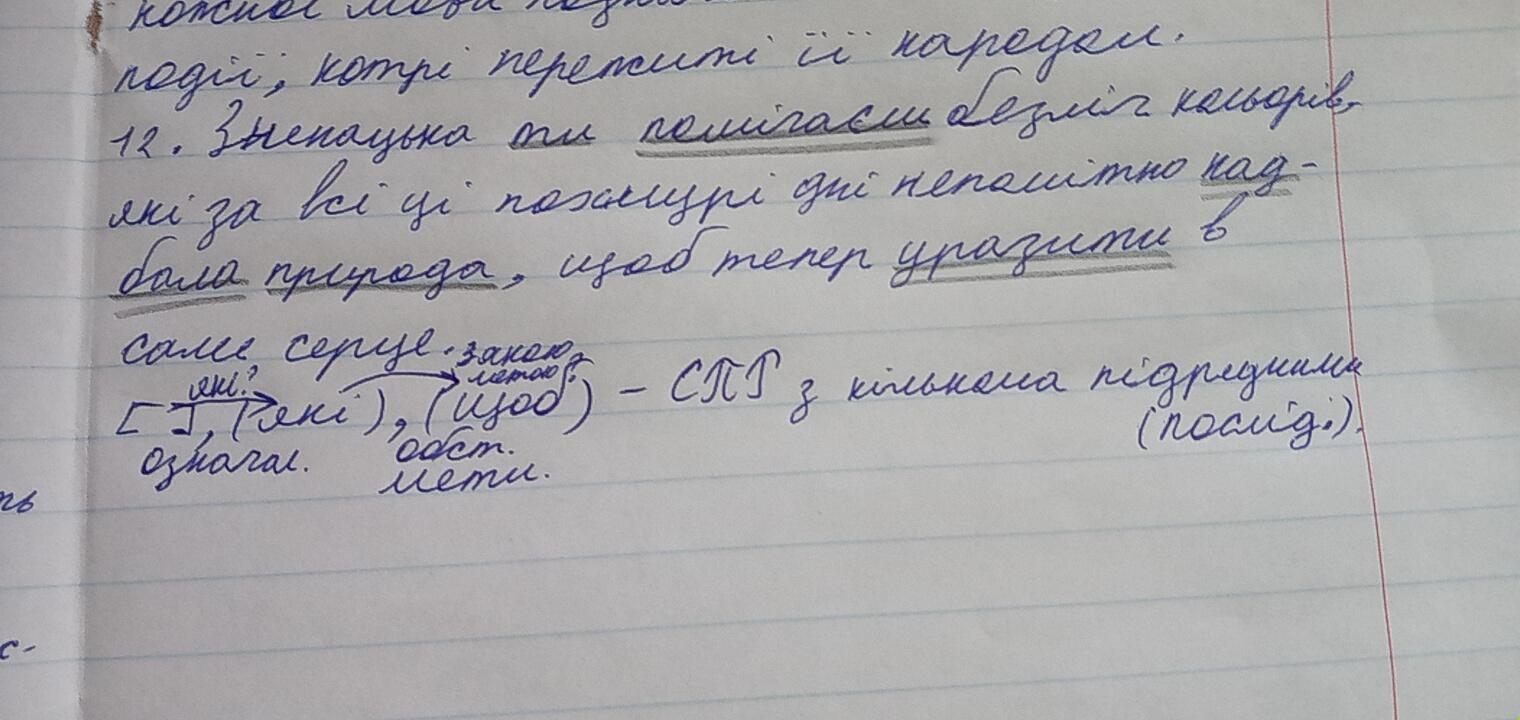 кожної мови
події, котрі пережиті її народом.
12. Зненацька ти помічаєш безліч кольорів,
які за всі ці похмурі дні непомітно над-
бала природа, щоб тепер уразити в
саме серце.
які? з якою метою?
[ ], (які), (щоб) – СПР з кількома підрядними
(послід.).
означал. обст.
мети.
ть
с-